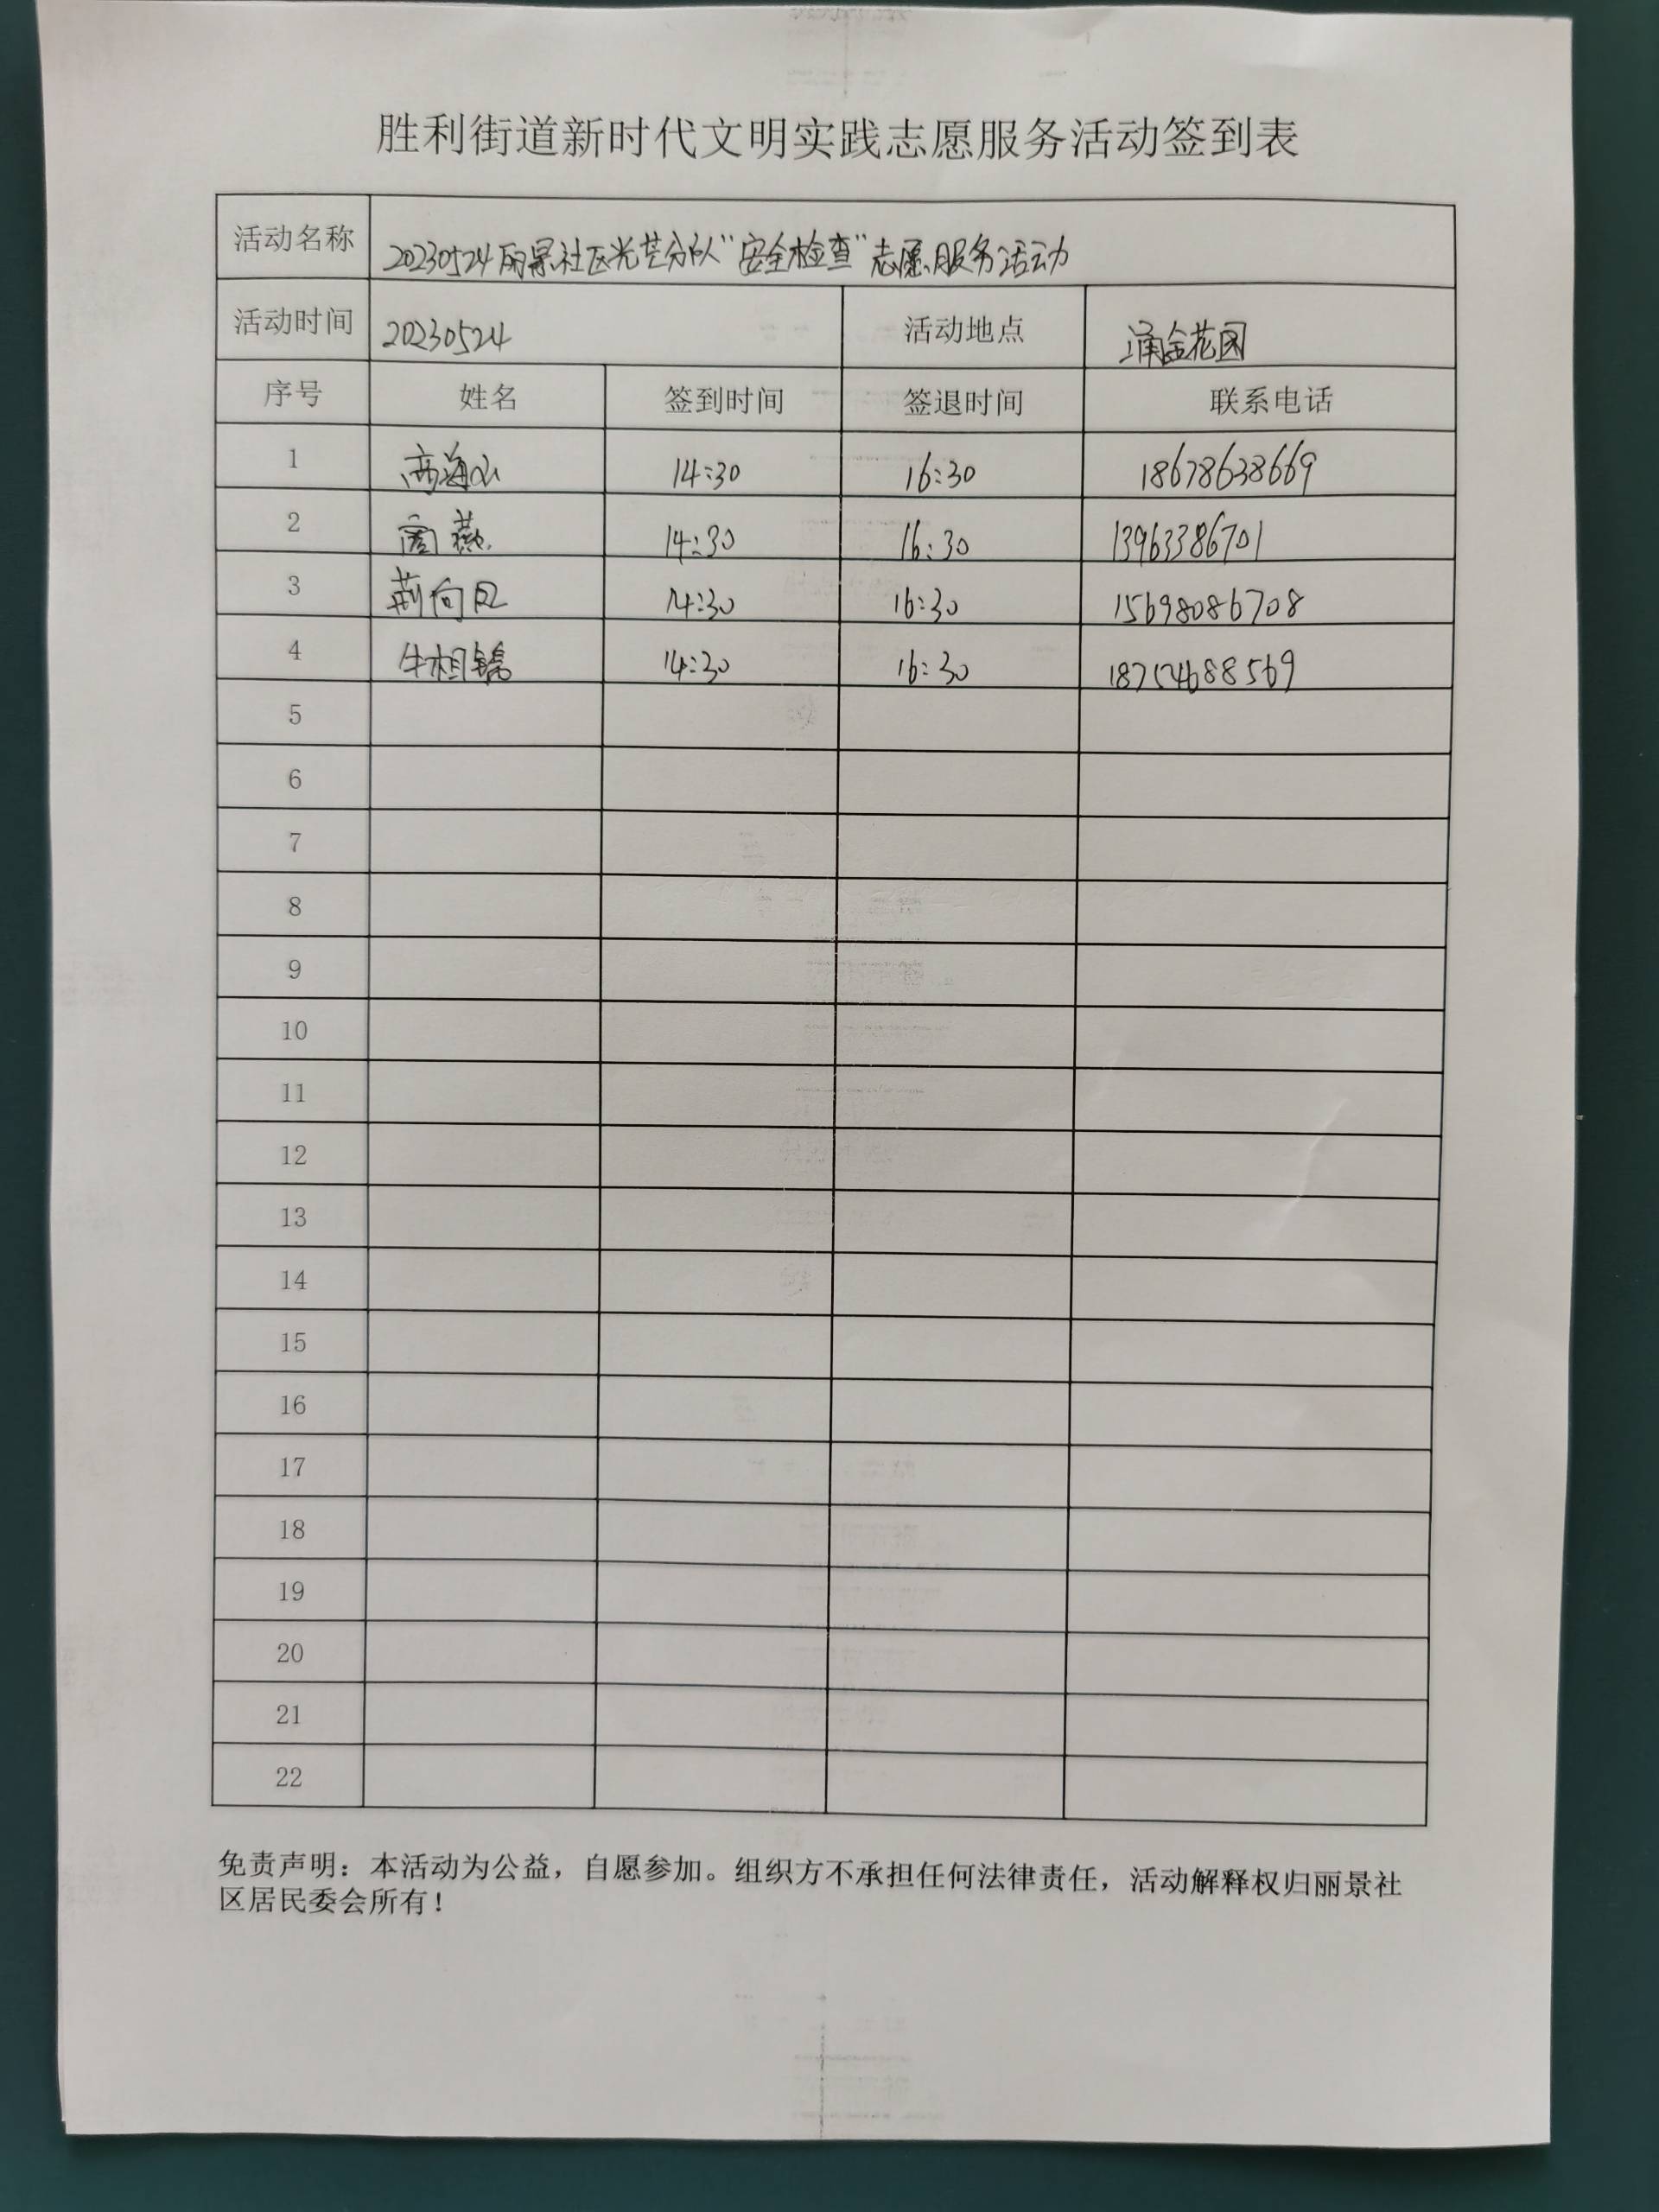 胜利街道新时代文明实践志愿服务活动签到表
活动名称 20230524丽景社区光芒分队“安全检查”志愿服务活动
活动时间 20230524 活动地点 涌金花园
序号 姓名 签到时间 签退时间 联系电话
1 高海山 14:30 16:30 18678638669
2 燕 14:30 16:30 13963386701
3 荆向 14:30 16:30 15698086708
4 牛相 14:30 16:30 18754688569
5
6
7
8
9
10
11
12
13
14
15
16
17
18
19
20
21
22
免责声明：本活动为公益，自愿参加。组织方不承担任何法律责任，活动解释权归丽景社
区居民委会所有！